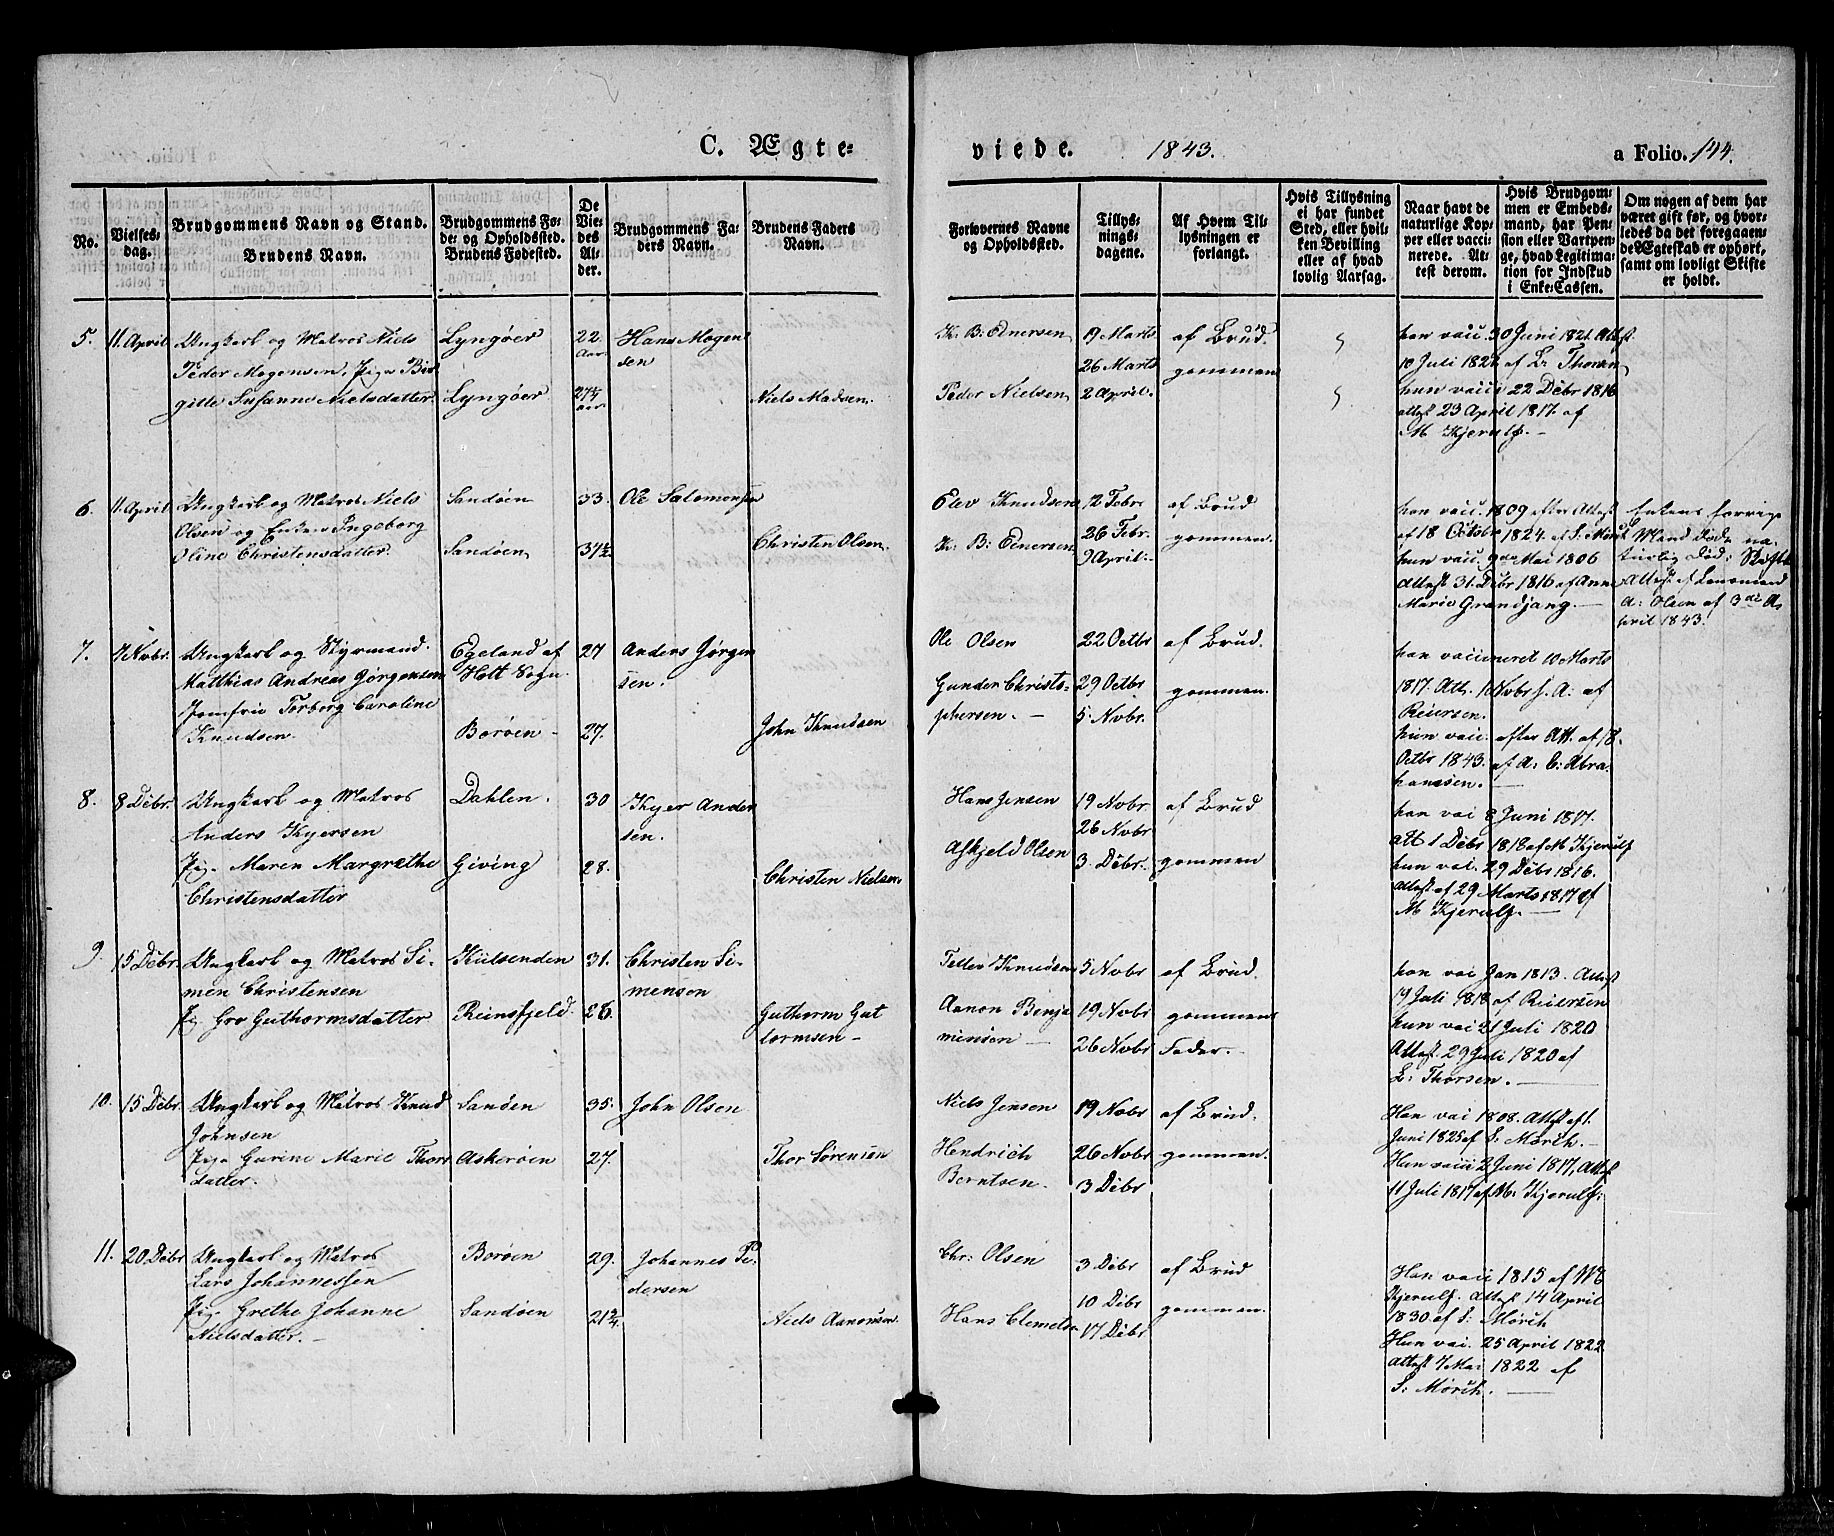 C. Ægte-
viede.
1843.
a Folio. 144.
No.
Vielses-
dag.
Brudgommens Navn og Stand.
Brudens Navn.
Brudgommens Fø-
de- og Opholdssted.
Brudens Fødested.
De
Vie-
des
Al-
der.
Brudgommens Fa-
ders Navn.
Brudens Faders
Navn.
Forlovernes Navne
og Opholdssted.
Tillys-
nings-
dagene.
Af Hvem Til-
lysningen er
forlangt.
Hvis Tillysning
ei har fundet
Sted, eller hvil-
ken Bevilling
eller af hvad
lovlig Aarsag.
Naar havt de
naturlige Kop-
per eller vacci-
nerede. At-
test derom.
Hvis Brudgom-
men er Embeds-
mand, har Pen-
sion eller Vartpen-
ge, hvad Legitima-
tion for Indskud
i Enke-Cassen.
Om nogen af dem har
været gift før, og hvor-
ledes da det foregaaen-
de Ægteskab er ophørt,
samt om lovligt Skifte
er holdt.
5. 11. April
Ungkarl og Matros Niels
Peder Mogensen, Pige Bir
gitte Susanne Nielsdatter.
Lyngöer
Lyngöer
22
Aar
27¼
aar
Hans Mogen
sen
Niels Madsen.
K: B: Enersen
Peder Nielsen
19 Marts
26 Marts
2 April.
af Brud
gommen
han vacc 30 Juni 1821 Attest
10 Juli 1821 af L: Thorsen
hun vacci 22 Debr 1816
attest 23 April 1817 af
M Kjerulf. -
6. 11. April
Ungkarl og Matros Niels
Olsen og Enken Ingeborg
Oline Christensdatter.
Sandöen
Sandöen
33.
31½
Ole Salomonsen
Christen Olsen.
Elev Knudsen
K: B: Enersen
12 Febr
26 Febr.
9 April:
af Brud
gommen.
han vacc. 1809 efter Attest
af 18 Octobr 1824 af S: Mörch
hun vacc. 9de Mai 1806
Attest 31. Debr 1816 af Anne
Marie Grandjang. -
Enkens forrige
Mand döde na-
turlig Död: Skifte
Attest af Lensmand
A: Olsen af 3die A-
pril 1843.
7. 7 Novbr.
Ungkarl og Styrmand
Matthias Andreas Jörgensen
Jomfrue Torborg Caroline
Knudsen.
Egeland af
Holt Sogn.
Boröen
27
27.
Anders Jörgen
sen.
John Knudsen
Ole Olsen
Gunder Christo-
phersen. -
22 Octbr
29 Octbr
5. Novbr.
af Brud
gommen.
han vaccineret 10 Marts
1817. Att. 1 Novbr s. A: af
Reiersen.
hun vacc. efter Att. af 18.
Octbr 1843. af A: C: Abra
hamsen. -
8. 8 Debr.
Ungkarl og Matros
Anders Kyersen
Pige Maren Margrethe
Christensdatter
Dahlen.
Giving
30
28.
Kyer Ander
sen.
Christen Nielsen
Hans Jensen
Askjeld Olsen
19 Novbr.
26 Novbr
3. Debr.
af Brud
gommen
han vai 8 Juni 1817.
att 1 Debr 1818 af M Kjerulf
hun vai. 29 Debr 1816.
attest af 29 Marts 1817 af
M Kjerulf. -
9. 15 Debr.
Ungkarl og Matros Si-
men Christensen
Pige Gro Guthormsdatter
Kiilsenden
Reinsfjeld.
31.
26.
Christen Si-
mensen
Guthorm Gut
tormsen -
Tellev Knudsen
Aanon Benja
minsen -
5 Novbr
19 Novbr
26 Novbr
af Brud
gommens
Fader. -
han vai Jan 1813. Attest
19 Juli 1818 af Reiersen
hun vai 21 Juli 1820
Attest. 29 Juli 1820 af
L: Thorsen. -
10. 15 Debr.
Ungkarl og Matros Knud
Johnsen
Pige Gurine Marie Thors
datter.
Sandöen
Askeröen
35.
27.
John Olsen
Thor Sörensen
Niels Jensen
Hendrich
Berntsen.
19 Novbr
26 Novbr
3 Debr
af Brud.
gommen.
Han vai 1808. Attest af 1.
Juni 1825 af S: Mörch. -
Hun vacci 2 Juni 1817, Attest
11 Juli 1817 af M: Kjerulf:
11. 20 Debr
Ungkarl og Matros
Lars Johannessen
Pige Grethe Johanne
Nielsdatter. -
Boröen
Sandöen
29.
21¾.
Johannes Pe-
dersen
Niels Aanonsen.
Chr: Olsen
Hans Clemetsen
3 Debr
10 Debr
17 Debr
af Brud
gommen.
Han vacc 1815 af M
Kjerulf. attest 14 April
1830. af S: Mörch
Hun vai. 25 April 1822
attest 7 Mai 1822 af
S: Mörch. -